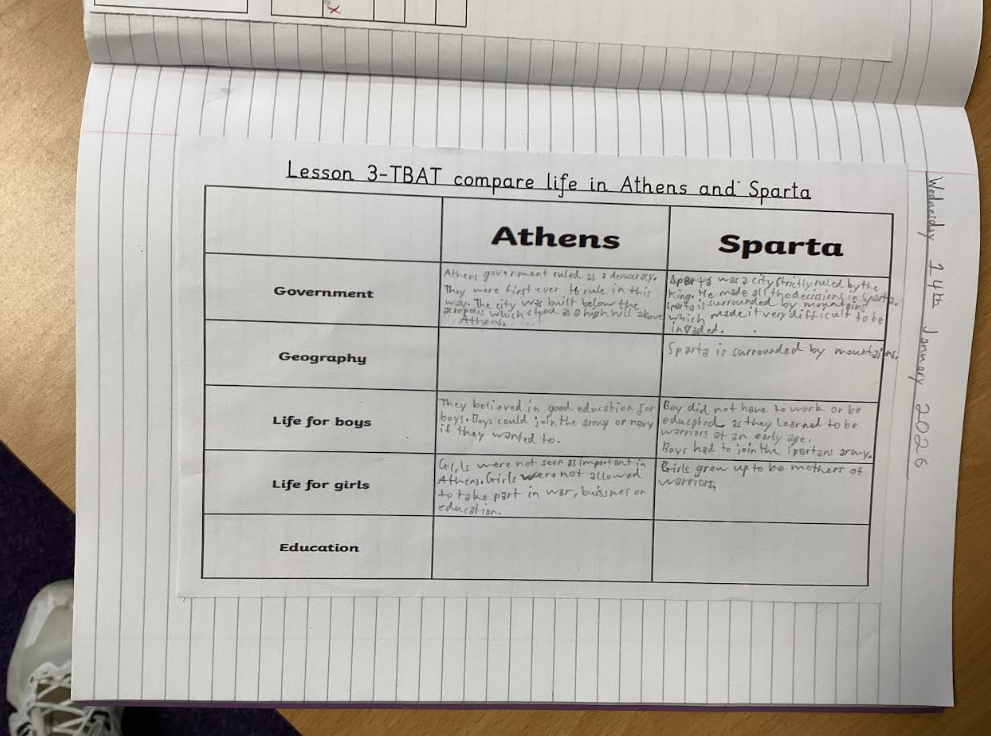 Lesson 3-TBAT compare life in Athens and Sparta
Athens
Sparta
Government
Athens government ruled as a democracy.
They were first ever to rule in this
way. The city was built below the
acropolis which stood as a high hill above
Athens.
Sparta was a city strictly ruled by the
King. He made all the decissions in Sparta.
Sparta is surrounded by mountains
which made it very difficult to be
invaded.
Geography
Sparta is surrounded by mountains.
Life for boys
They believed in good education for
boys. Boys could join the army or navy
if they wanted to.
Boy did not have to work or be
educated as they learned to be
warriors at an early age.
Boys had to join the spartans army.
Life for girls
Girls were not seen as important in
Athens. Girls were not allowed
to take part in war, buissnes or
education.
Girls grew up to be mothers of
warriors.
Education
Wednesday 14th January 2026